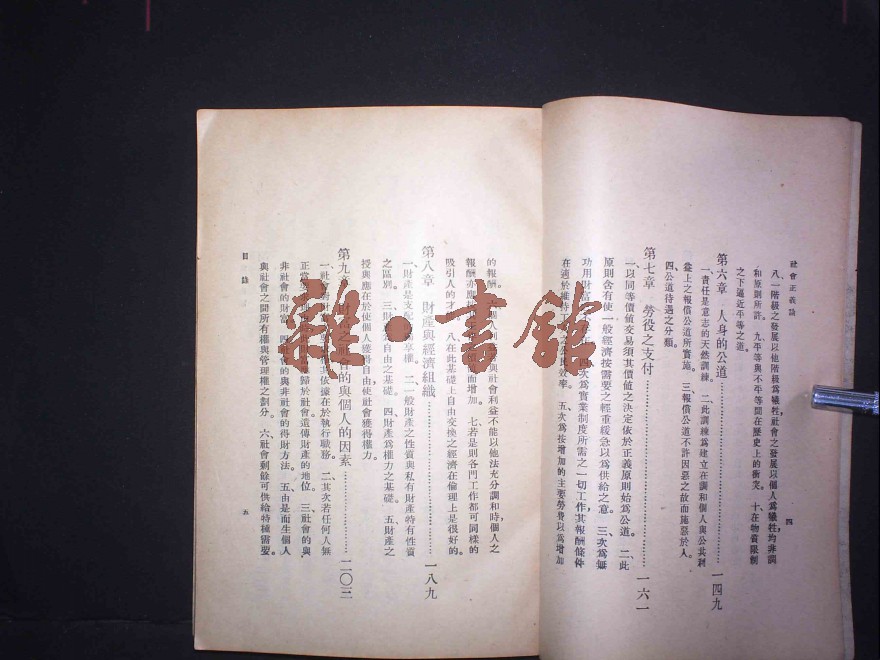 社會正義論
四
八、一階級之發展以他階級爲犧牲,社會之發展以個人爲犧牲,均非調
和原則所許。 九、平等與不平等間在歷史上的衝突。 十、在物質限制
之下逼近平等之道。
第六章 人身的公道 一四九
一、責任是意志的天然訓練。 二、此訓練爲建立在調和個人與公共利
益上之報償公道所實施。 三、報償公道不許因惡之故而施惡於人。
四、公道待遇之分類。
第七章 勞役之支付 一六一
一、以同等價値交易須其價値之決定依於正義原則始爲公道。 二、此
原則含有使一般經濟按需要之輕重緩急以爲供給之意。 三、次爲無
功用財富 次爲實業制度所需之一切工作,其報酬條件
在適於維持 效率。 五、次爲按增加的主要勞費以爲增加
的報酬。 與社會利益不能以他法充分調和時,個人之
報酬亦應 而增加。 七、若是則各門工作都可同樣的
吸引人的才 八、在此基礎上自由交換之經濟在倫理上是很好的。
第八章 財產與經濟組織 一八九
一、財產是支配 享權。 二、一般財產之性質與私有財產特有性質
之區別。 三、財 自由之基礎。 四、財產爲權力之基礎。 五、財產之
授與應在於使個人獲得自由,使社會獲得權力。
第九章 財 之社會的與個人的因素 二〇三
一、社 依據在於執行職務。 二、其次若任何人無
正當 歸於社會。遺傳財產的地位。 三、社會的與
非社會的財富。 四、社會的與非社會的得財方法。 五、由是而生個人
與社會之間所有權與管理權之劃分。 六、社會剩餘可供給特種需要。
目錄
五
雜·書館